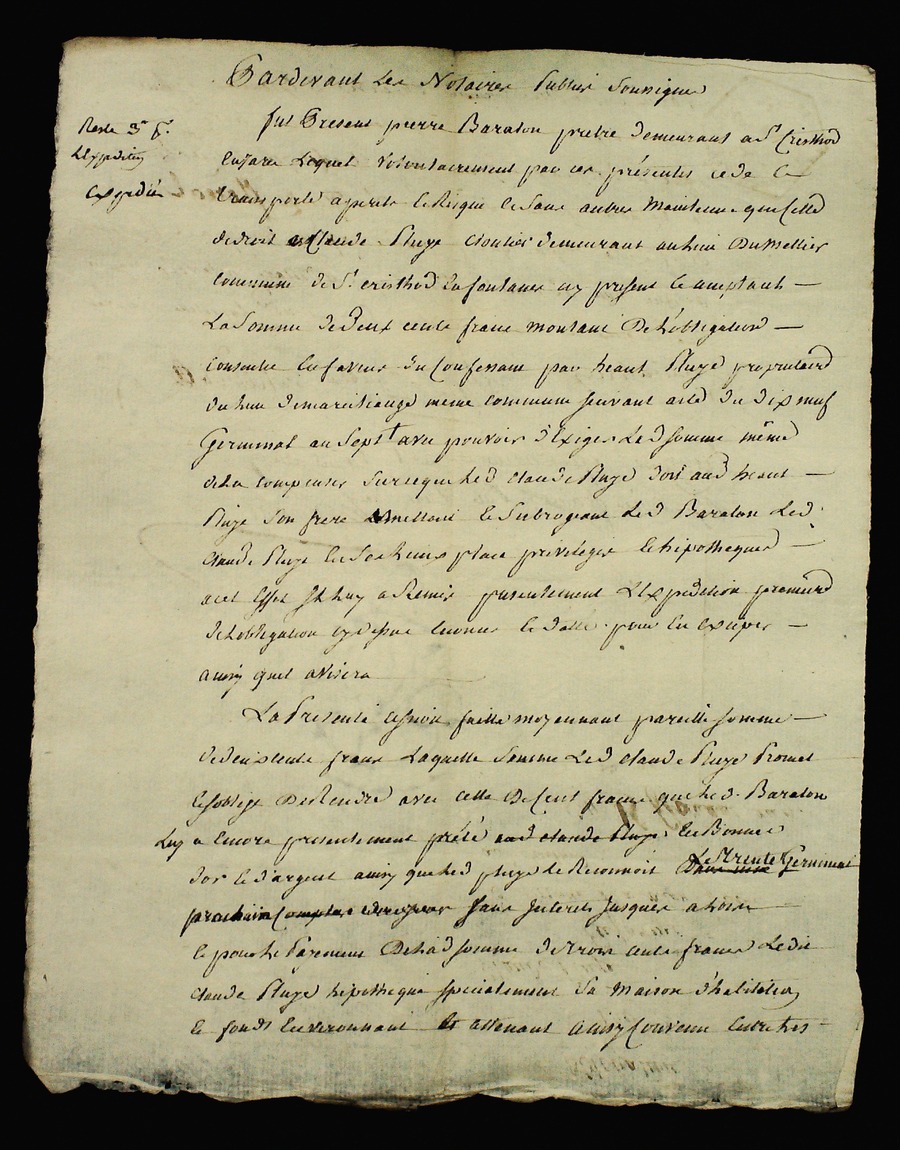 Pardevant Les Notaires Publics Soussignes
Reste 3 f.
Expedié
fut Present pierre Baraton pretre demeurant a St Cristhod
Lequel volontairement par ces présentes cede et
transporte a perte et Risque et sans autres Maintenue que celle
de droit a Claude Pluze cloutier demeurant au lieu Du Mellier
commune de St. cristhod La fontanes cy présent et acceptant
La Somme de Deux cents franc montant De L'obligation
Consentie En faveur du Confessant par heant Pluze propriétaire
du lieu même commune suivant acte du dix neuf
Germinal an Sept avec pouvoir d'Exiger Led somme même
de La compenser sur ce que Led claude Pluze doit aud heant
Pluze son frere Mettant et Subrogeant Led Baraton Led
claude Pluze En Ses Lieux place privilege et hipotheques
a cet Effet Il Luy a Remis présentement L'Expédition première
de L'obligation cy dessus Enoncée et datte pour En Exciper
ainsy quel avisera
La Presente cession faitte moyennant pareille somme
de deux cents francs Laquelle Somme Led claude Pluze Promet
et s'oblige De Rendre avec celle De Cent francs que Led Baraton
Luy a Encore présentement prété aud claude Pluze En Bonnes
d'or et d'argent ainsy que Led pluze Le Reconnoit Le Trente Germinal
prochain sans Interets jusques a Lors
et pour Le Payement De La d somme de trois cents francs Le dit
claude Pluze hipotheque spécialement Sa Maison d'habitation
et fonds Environnant et attenant ainsy Convenu Entre Les